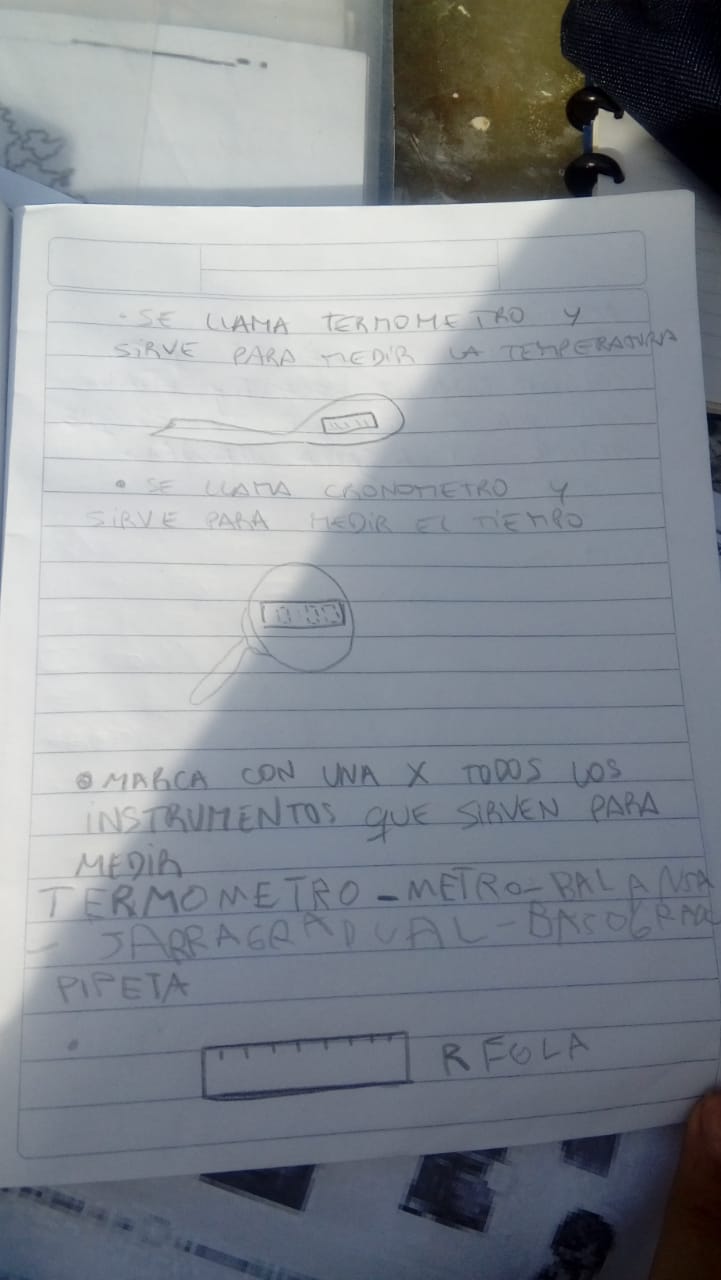 · SE LLAMA TERMOMETRO Y
SIRVE PARA MEDIR LA TEMPERATURA
• SE LLAMA CRONOMETRO Y
SIRVE PARA MEDIR EL TIEMPO
0:00
• MARCA CON UNA X TODOS LOS
INSTRUMENTOS QUE SIRVEN PARA
MEDIR
TERMOMETRO - METRO - BALANSA
- JARRAGRADUAL -
PIPETA
• REGLA